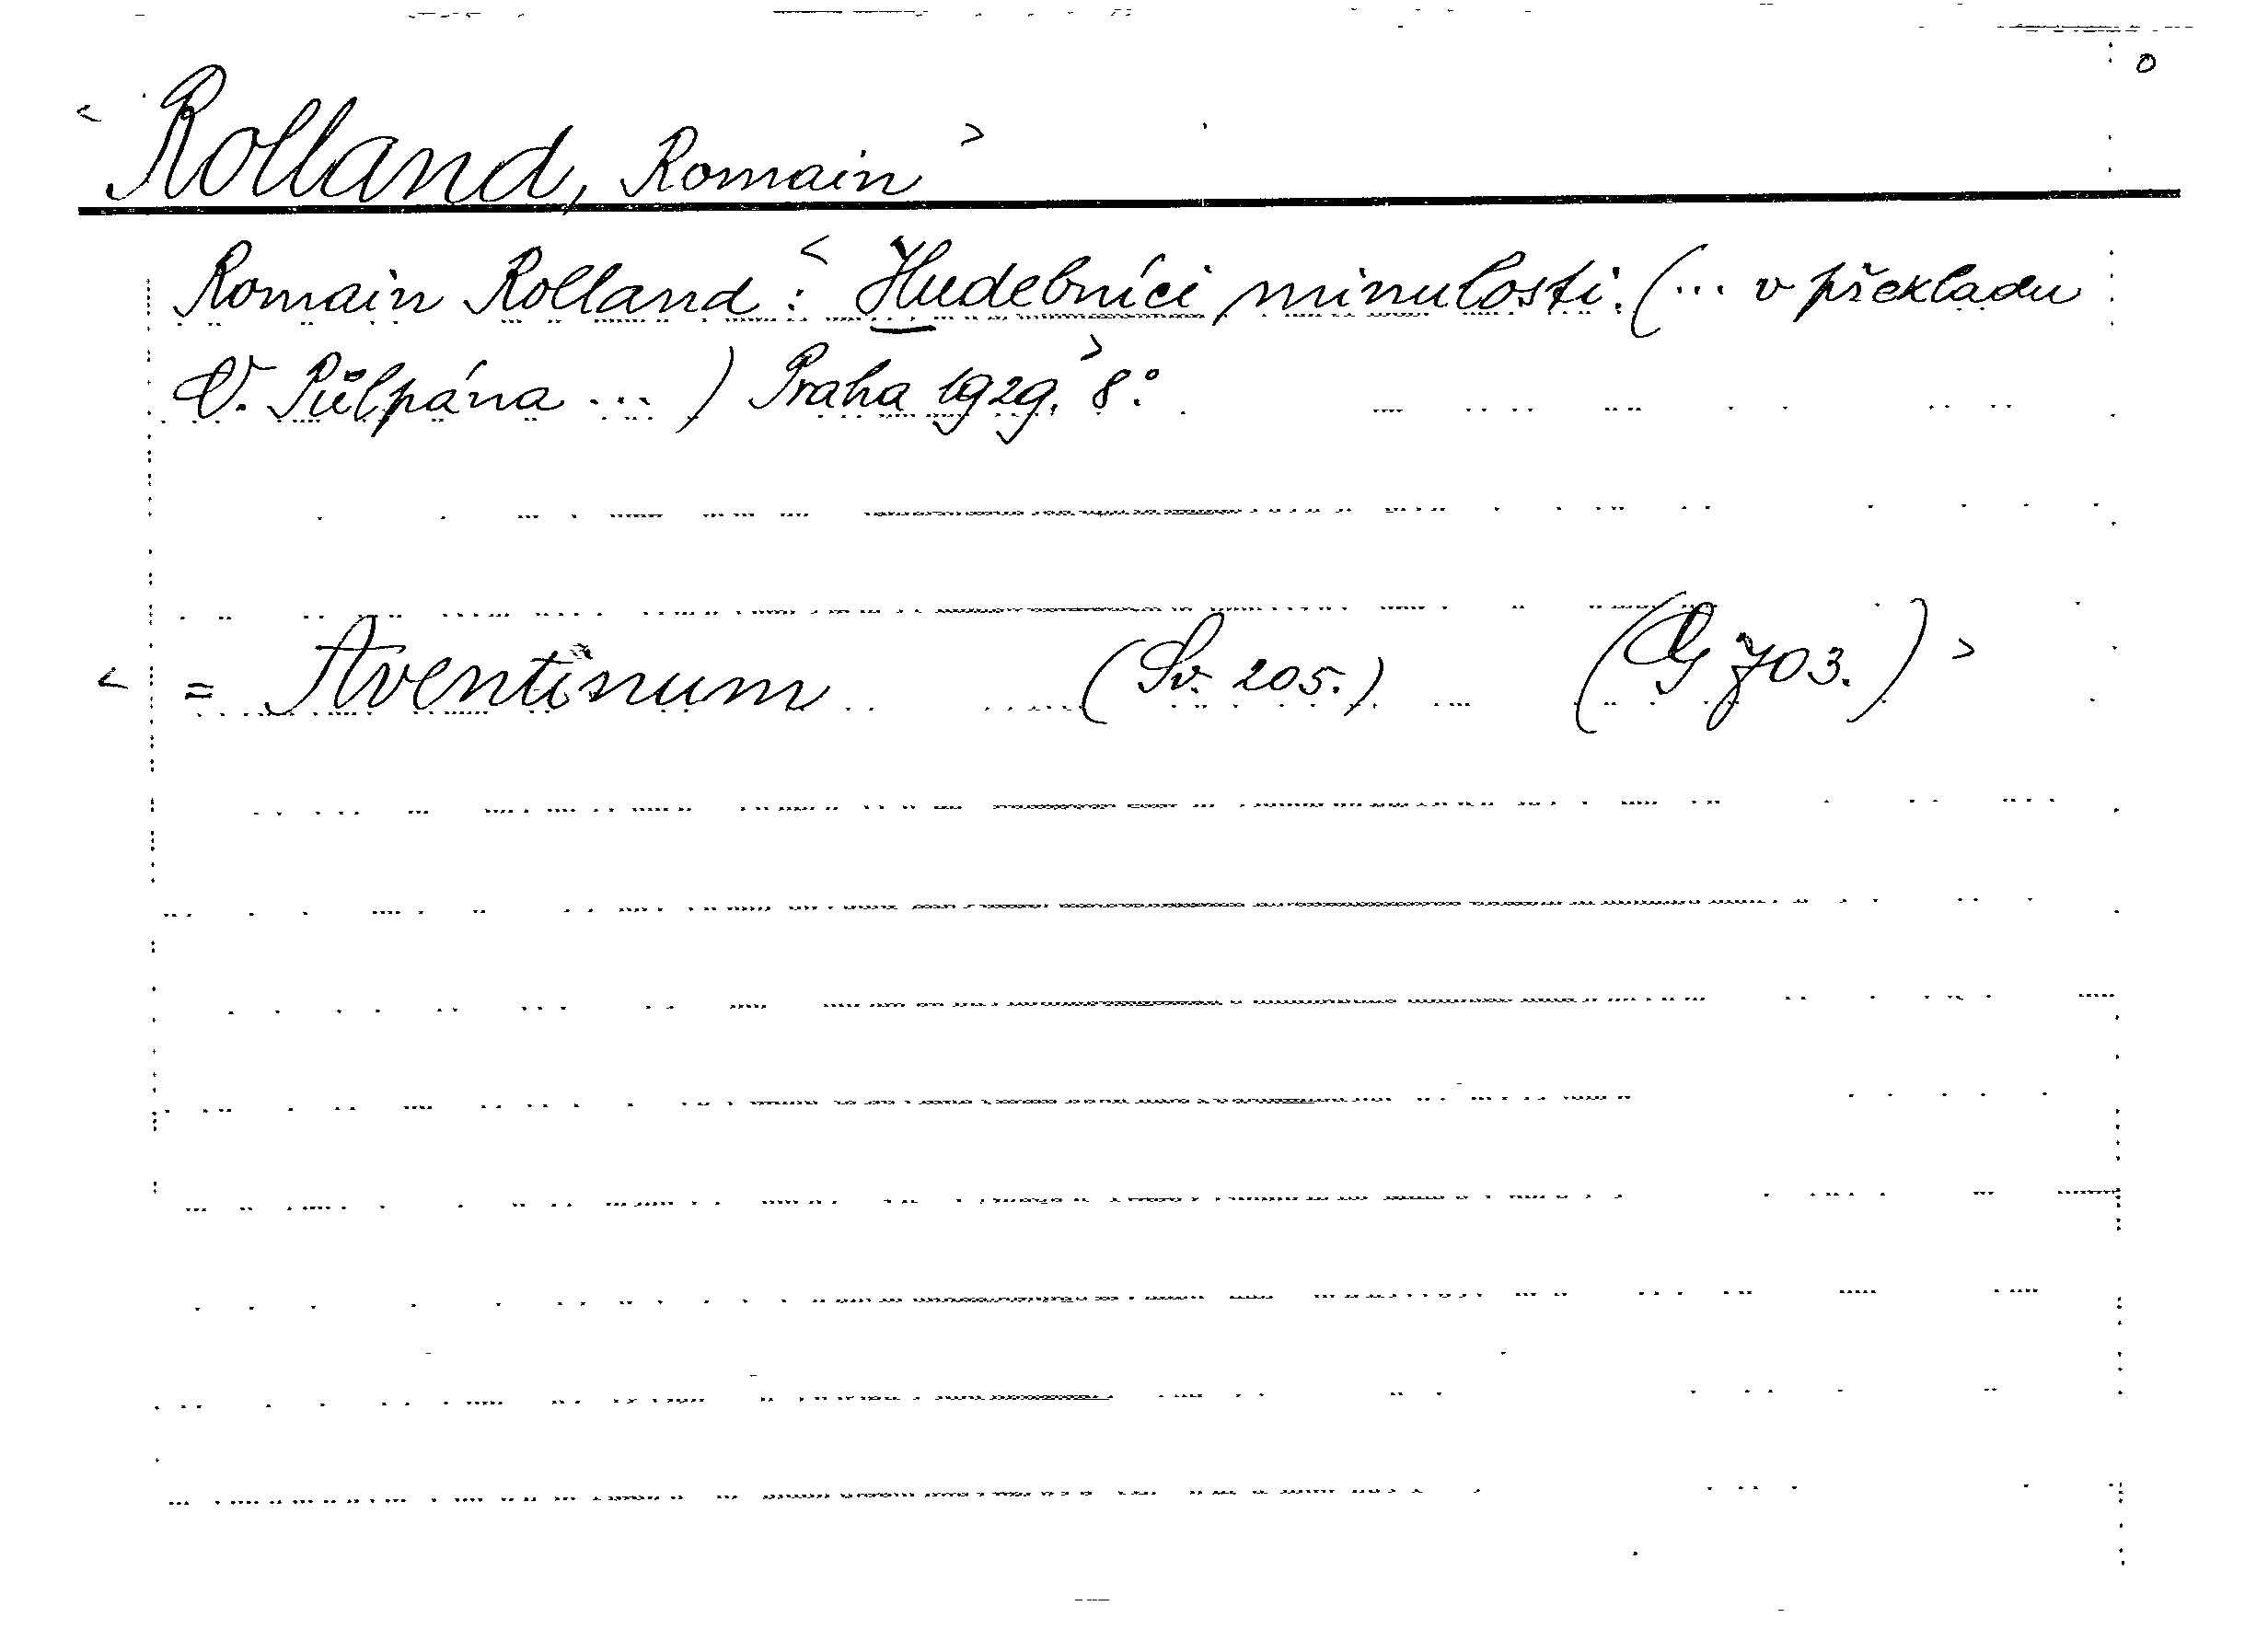 < Rolland, Romain > o
Romain Rolland: < Hudebníci minulosti. (... v překladu
V. Půlpána ...) Praha 1929. > 8°
< = Aventinum (Sv. 205.) (G 703.) >